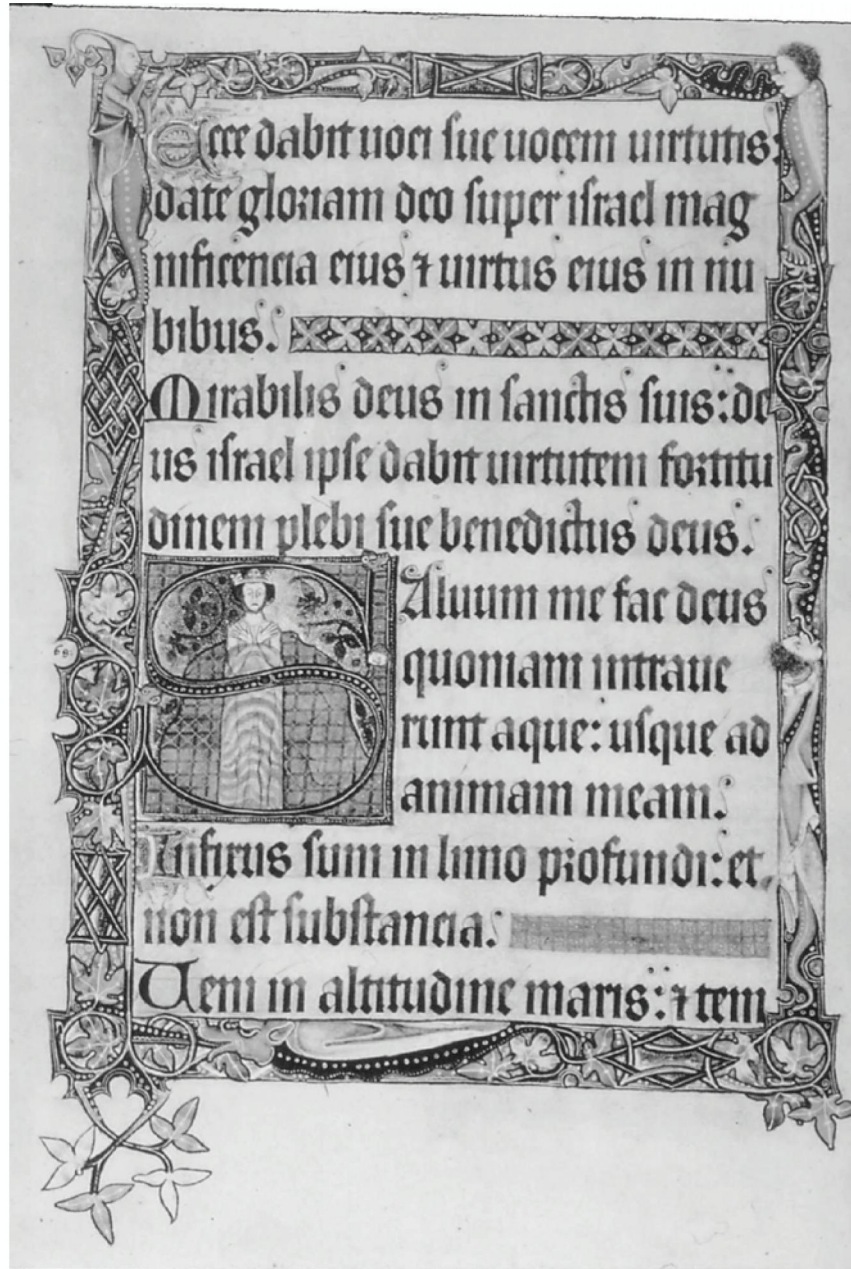 Ecce dabit uoci sue uocem uirtutis:
date gloriam deo super israel mag
nificencia eius ⁊ uirtus eius in nu
bibus.
Mirabilis deus in sanctis suis: de
us israel ipse dabit uirtutem fortitu
dinem plebi sue benedictus deus.
Saluum me fac deus
quoniam intraue
runt aque: usque ad
animam meam.
Infixus sum in limo profundi: et
non est substancia.
Ueni in altitudine maris: ⁊ tem